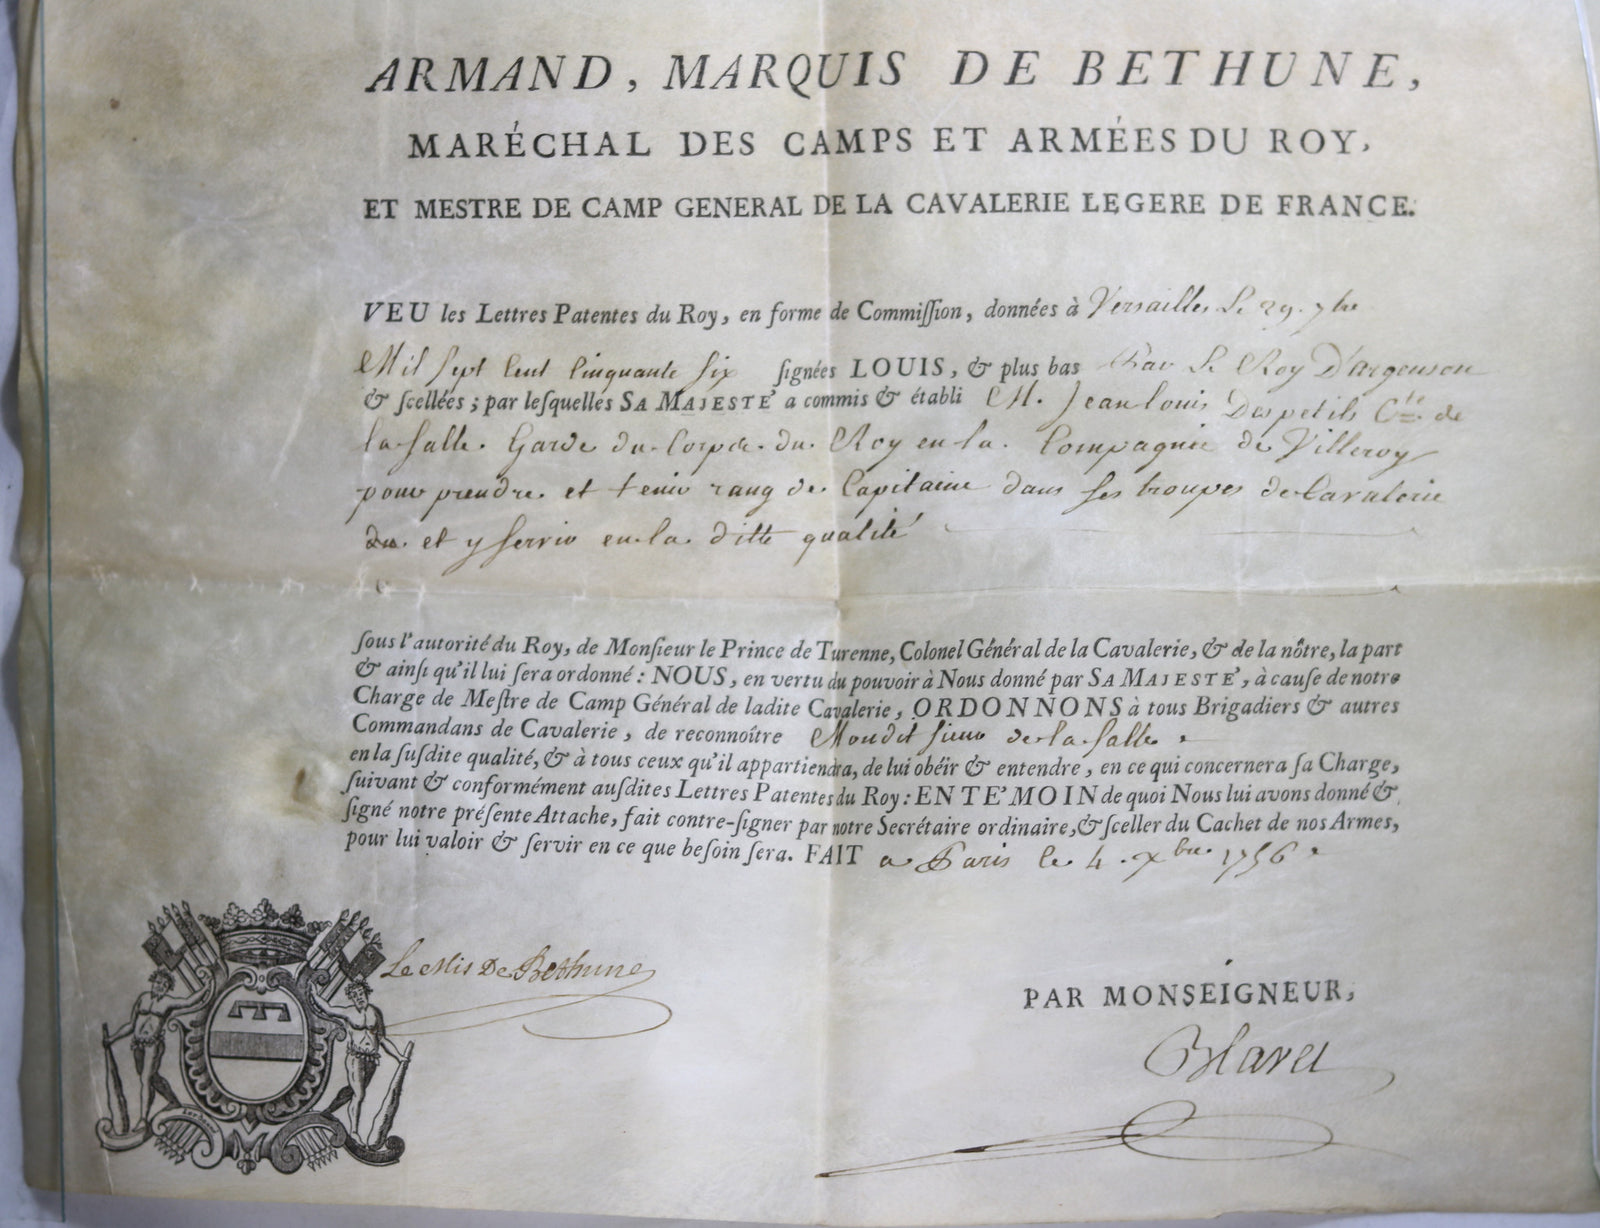 ARMAND, MARQUIS DE BETHUNE,
MARÉCHAL DES CAMPS ET ARMÉES DU ROY,
ET MESTRE DE CAMP GENERAL DE LA CAVALERIE LEGERE DE FRANCE.
VEU les Lettres Patentes du Roy, en forme de Commiſſion, données à Versailles le 29. 7bre
Mil sept Cent Cinquante six ſignées LOUIS, & plus bas Par le Roy D'argenson
& ſcellées ; par leſquelles SA MAJESTE' a commis & établi M. Jean louis Despetits Cte de
la Salle. Garde du Corps du Roy en la Compagnie de Villeroy
pour prendre et tenir rang de Capitaine dans ses troupes de Cavalerie
du et y servir en la ditte qualité
ſous l'autorité du Roy, de Monſieur le Prince de Turenne, Colonel Général de la Cavalerie, & de la nôtre, la part
& ainſi qu'il lui ſera ordonné : NOUS, en vertu du pouvoir à Nous donné par SA MAJESTE', à cauſe de notre
Charge de Meſtre de Camp Général de ladite Cavalerie, ORDONNONS à tous Brigadiers & autres
Commandans de Cavalerie, de reconnoître Mondit sieur de la Salle
en la ſuſdite qualité, & à tous ceux qu'il appartiendra, de lui obéir & entendre, en ce qui concernera ſa Charge,
ſuivant & conformément auſdites Lettres Patentes du Roy : EN TE'MOIN de quoi Nous lui avons donné &
ſigné notre préſente Attache, fait contre-ſigner par notre Secrétaire ordinaire, & ſceller du Cachet de nos Armes,
pour lui valoir & ſervir en ce que beſoin ſera. FAIT a Paris le 4. xbre. 1756
Le Mis De Bethune
PAR MONSEIGNEUR,
Blavet